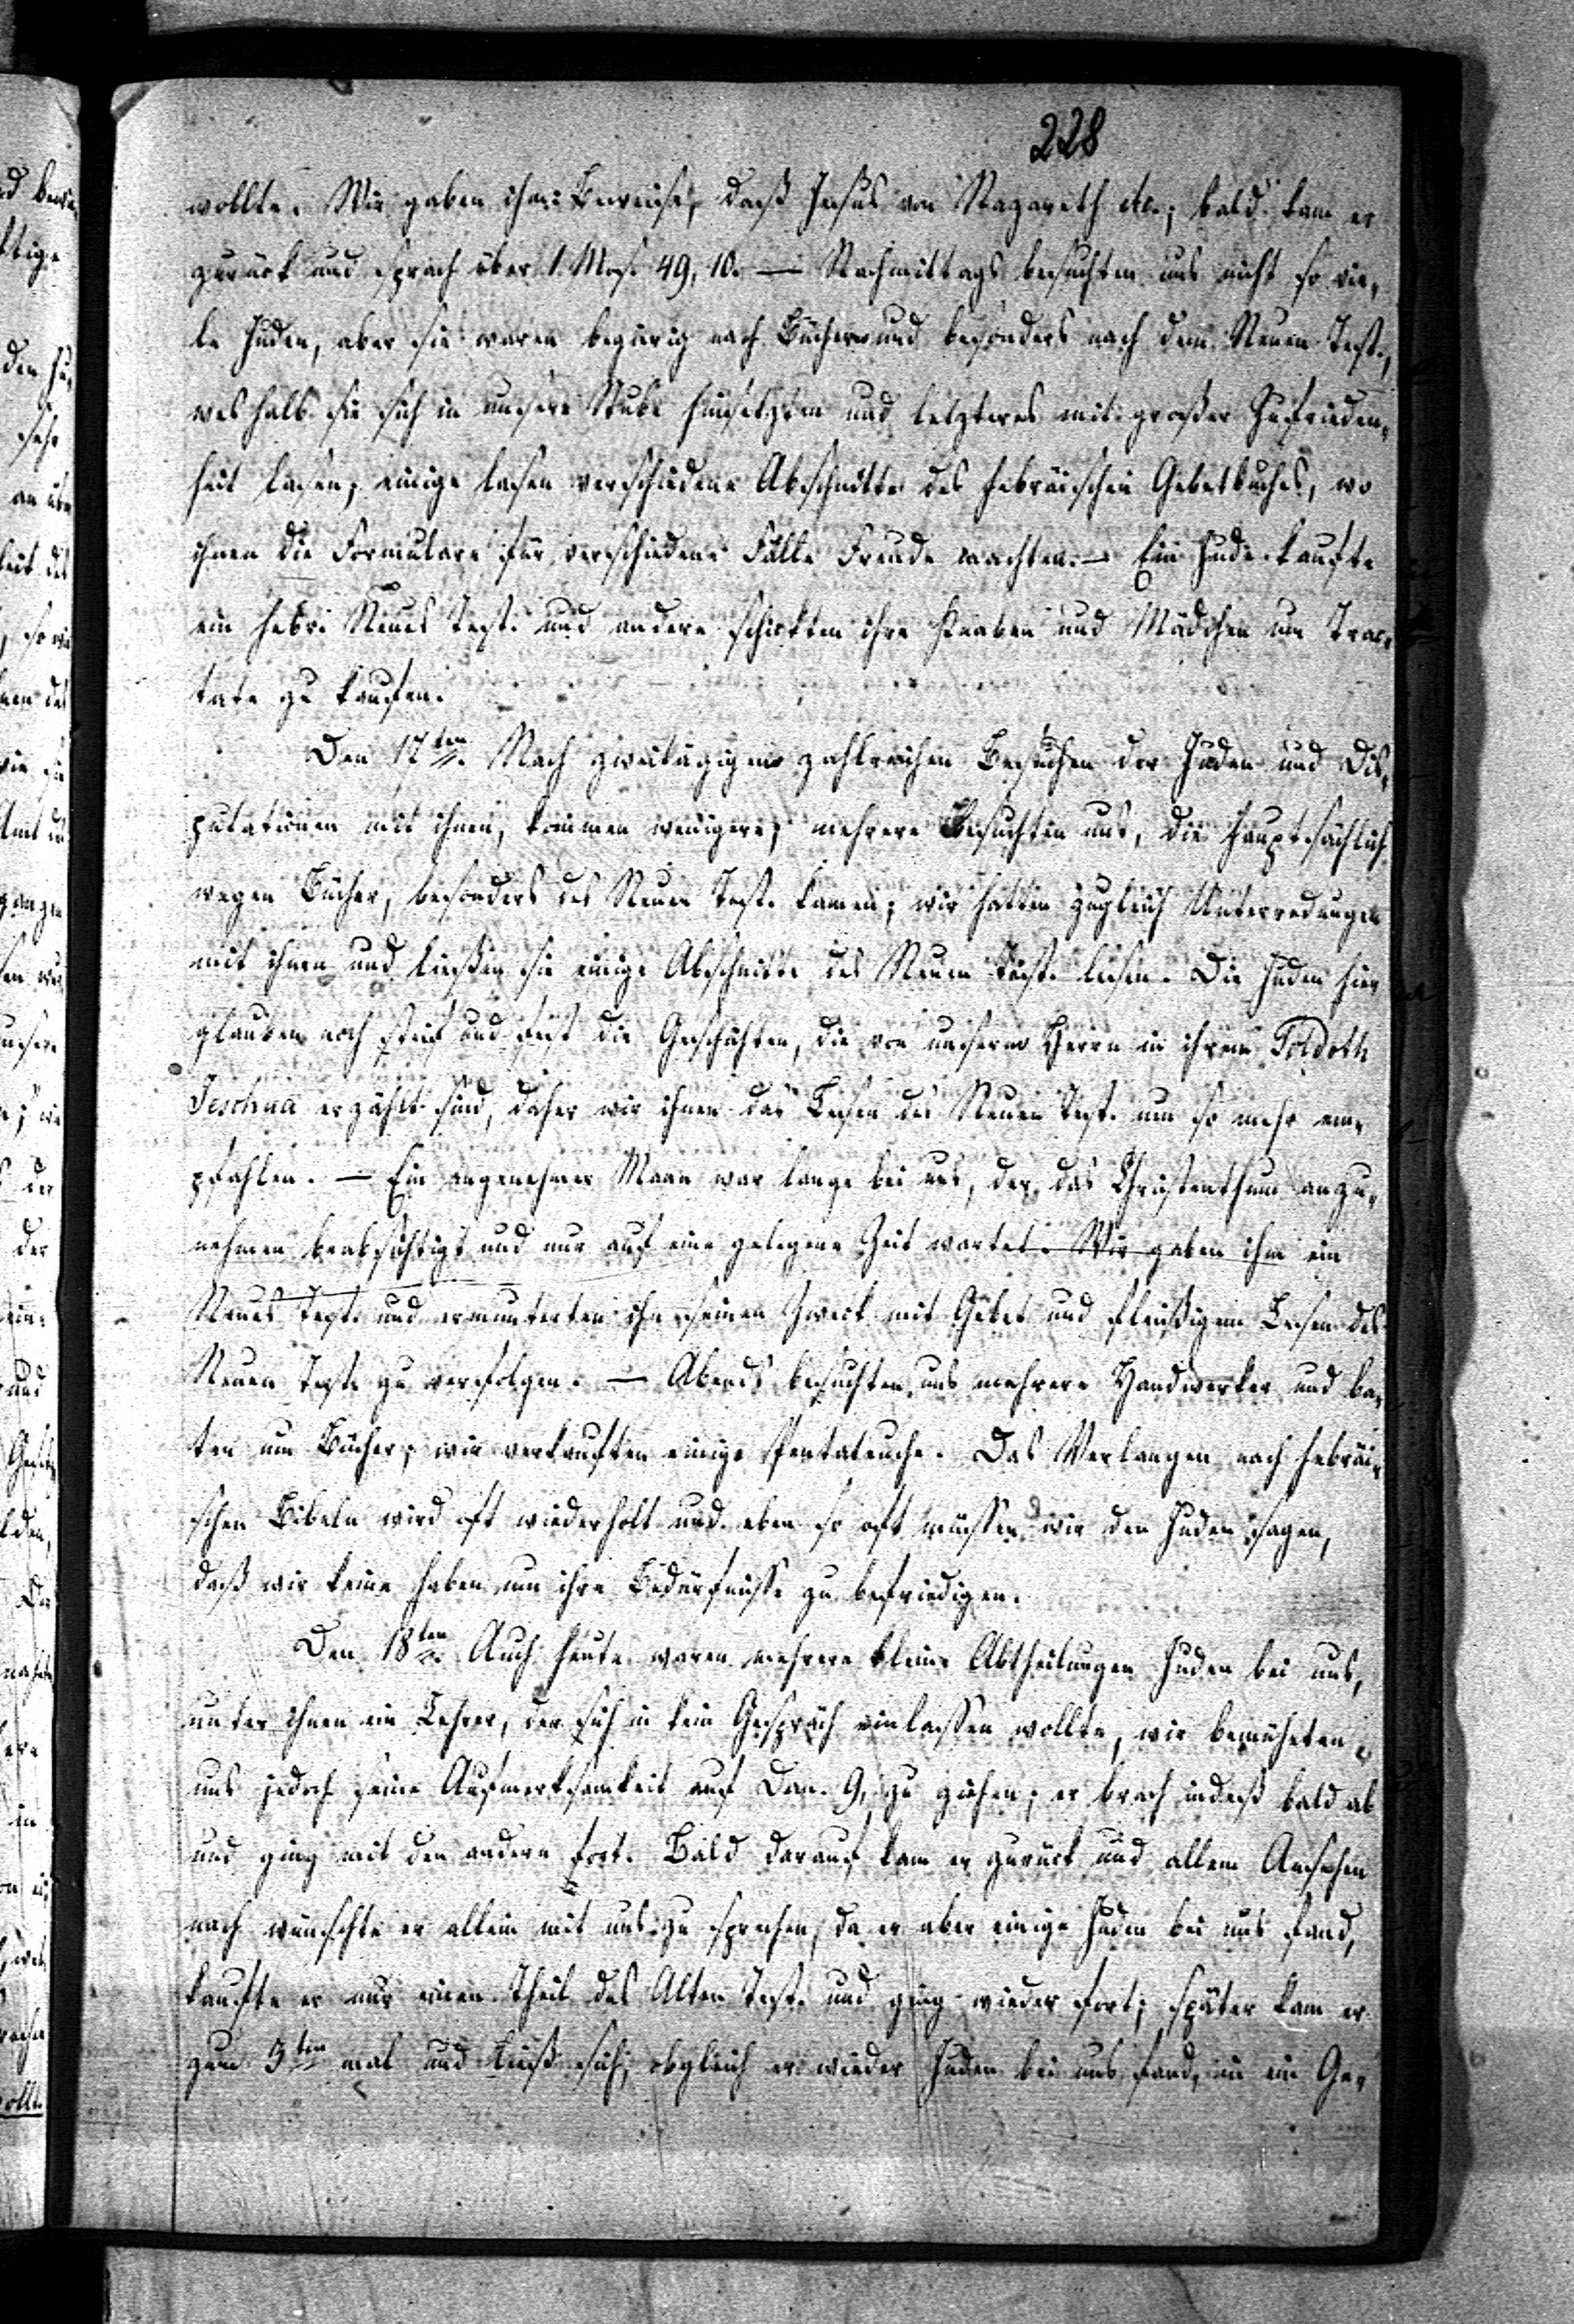 228
wollte. Wir gaben ihm Beweise, daß Jesus von Nazareth etc.; bald kam er
zurück und sprach über 1 Mos. 49, 10. — Nachmittags besuchten uns nicht so vie-
le Juden, aber sie waren begierig nach Büchern und besonders nach dem Neuen Test.,
weshalb sie sich in unsere Stube hinsetzten und letzteres mit großer Zufrieden-
heit lasen; einige lasen verschiedene Abschnitte des hebräischen Gebetbuches, wo
ihnen die Formulare für verschiedene Fälle Freude machten. — Ein Jude kaufte
ein hebr. Neues Test. und andere schickten ihre Knaben und Mädchen um Trac-
tate zu kaufen.
Den 17ten. Nach zweitägigen zahlreichen Besuchen der Juden und Dis-
putationen mit ihnen, kommen wenigere; mehrere besuchten uns, die hauptsächlich
wegen Bücher, besonders des Neuen Test. kamen; wir hatten zugleich Unterredungen
mit ihnen und ließen sie einige Abschnitte des Neuen Test. lesen. Die Juden hier
glauben noch steif und fest die Geschichten, die von unserm Herrn in ihrem Toldoth
Jeschua erzählt sind, daher wir ihnen das Lesen des Neuen Test. um so mehr em-
pfahlen. — Ein angenehmer Mann war lange bei uns, der, das Christenthum anzu-
nehmen beabsichtigt und nur auf eine gelegene Zeit wartet. Wir gaben ihm ein
Neues Test. und ermunterten ihn seinen Zweck mit Gebet und fleißigem Lesen des
Neuen Test. zu verfolgen. — Abends besuchten uns mehrere Handwerker und ba-
ten um Bücher; wir verkauften einige Pentateuche. Das Verlangen nach hebräi-
schen Bibeln wird oft wiederholt und eben so oft müssen wir den Juden sagen,
daß wir keine haben um ihre Bedürfnisse zu befriedigen.
Den 18ten. Auch heute waren mehrere kleine Abtheilungen Juden bei uns,
unter ihnen ein Lehrer, der sich in kein Gespräch einlassen wollte, wir bemüheten
uns jedoch seine Aufmerksamkeit auf Dan. 9, zu ziehen; er brach indeß bald ab
und ging mit den andern fort. Bald darauf kam er zurück und allem Ansehen
nach wünschte er allein mit uns zu sprechen, da er aber einige Juden bei uns fand,
kaufte er nur einen Theil des Alten Test. und ging wieder fort; später kam er
zum 3ten mal und ließ sich, obgleich er wieder Juden bei uns fand, in ein Ge-